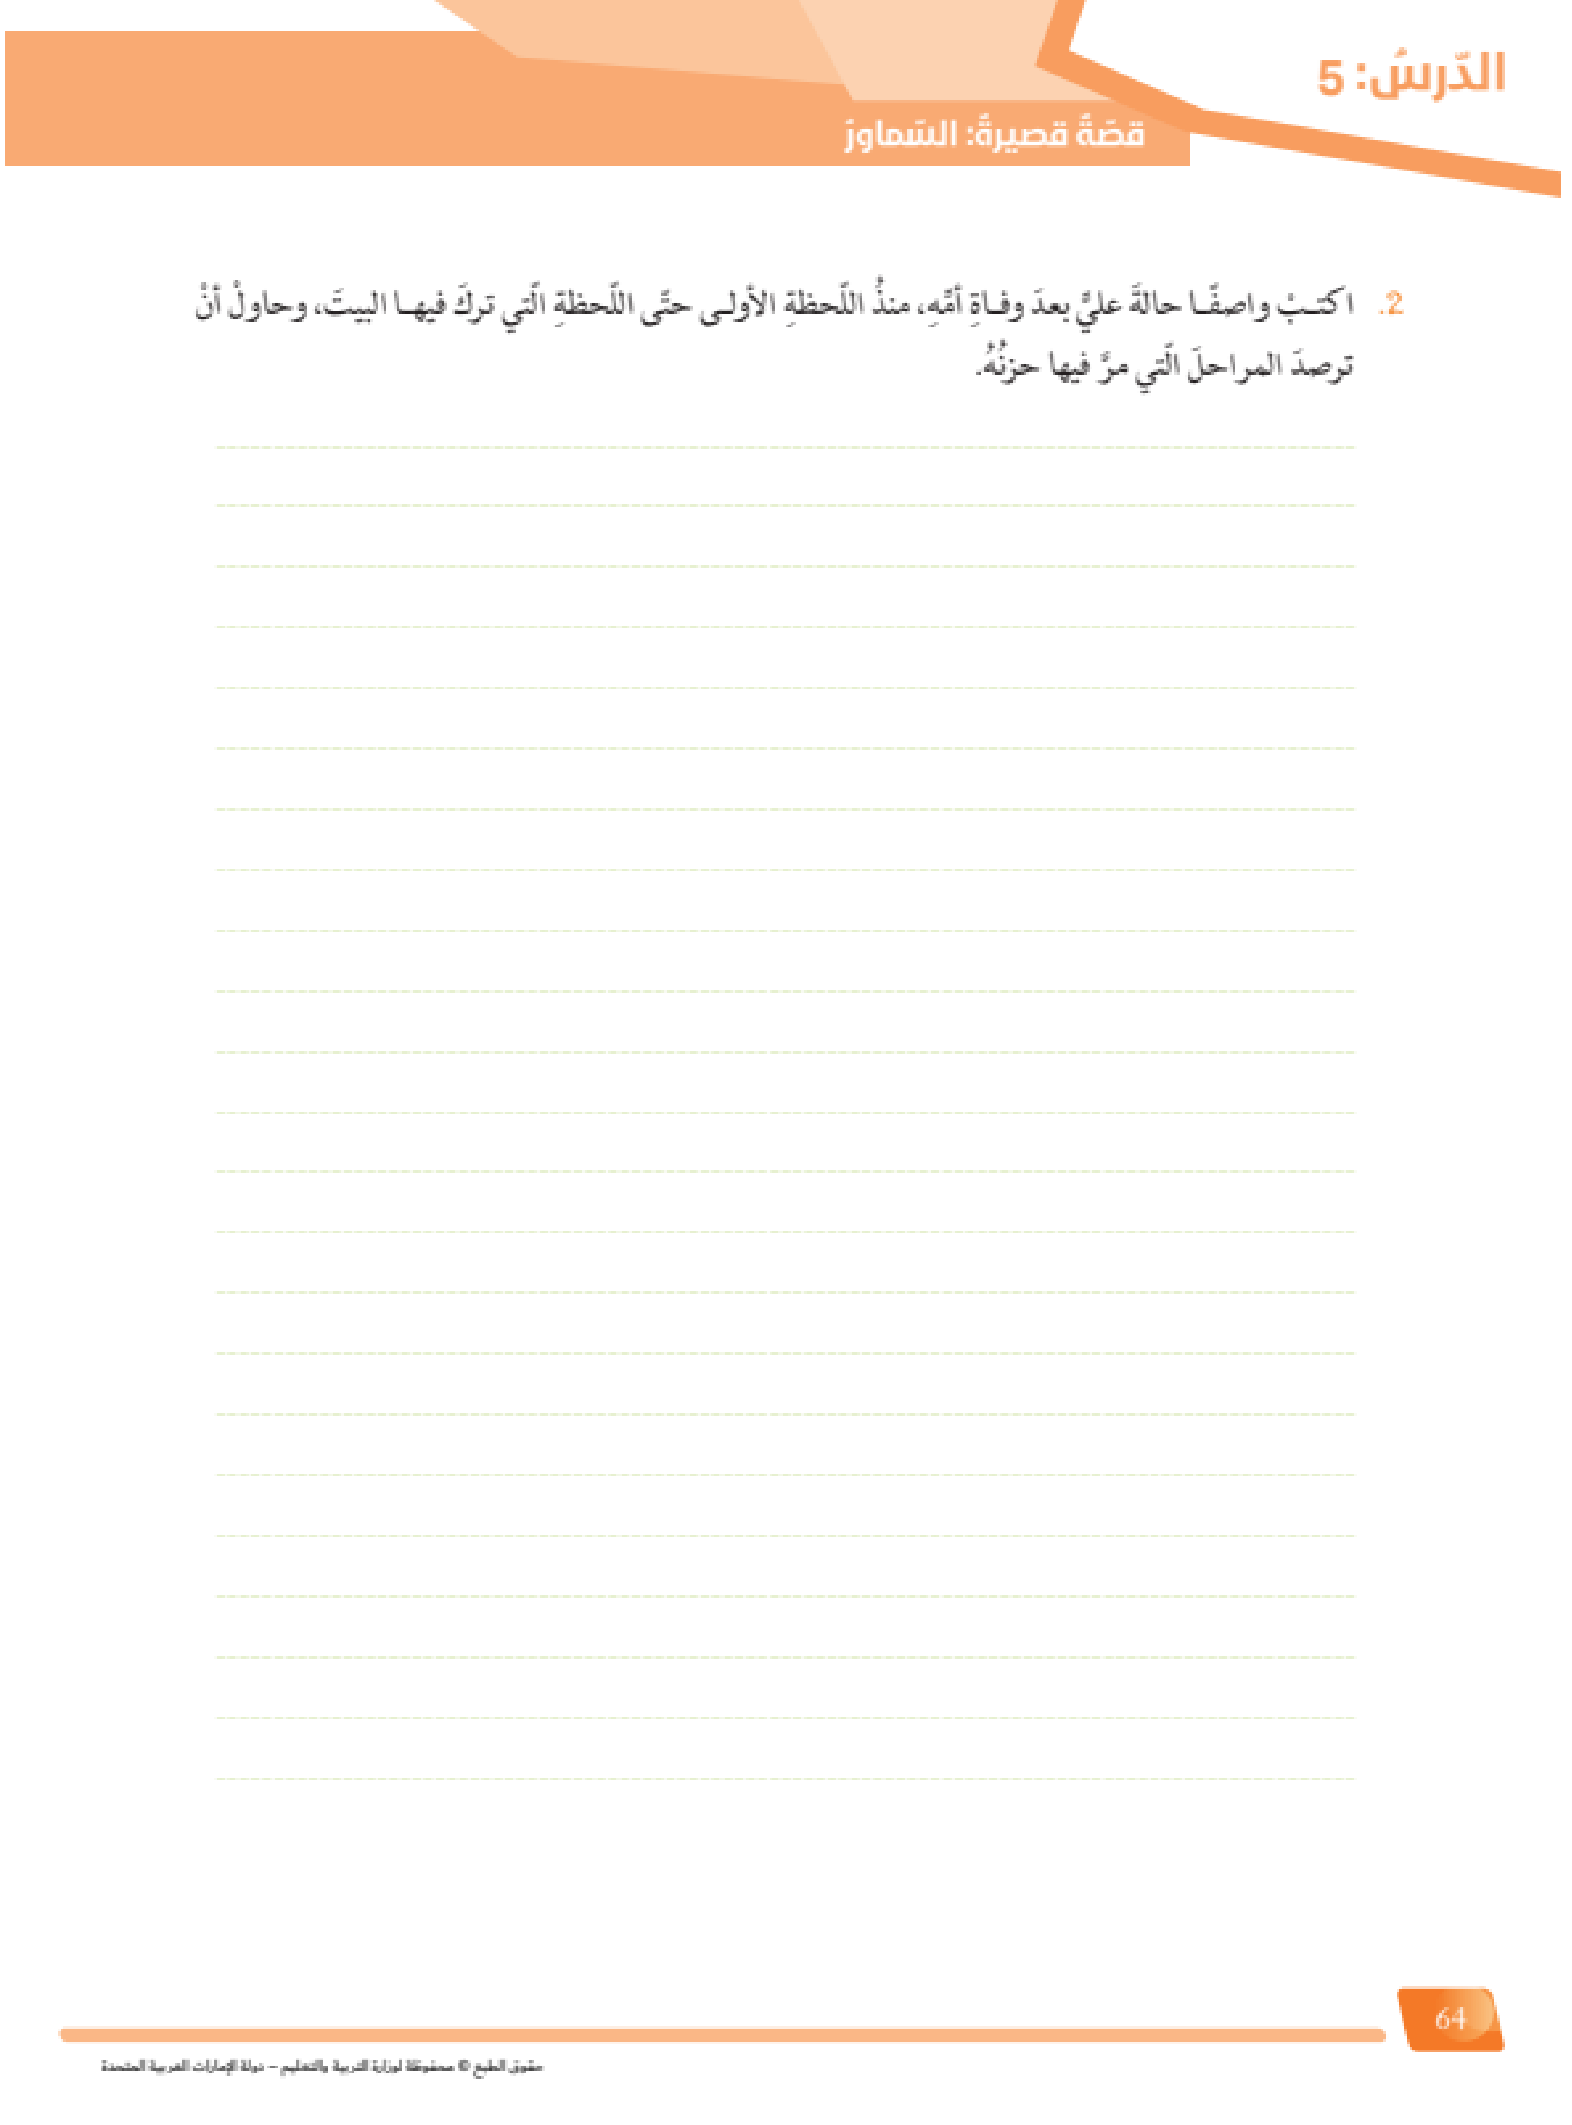 الدّرسُ: 5
قصّةٌ قصيرةٌ: السّماورُ
2. اكتـبْ واصفًـا حالةَ عليٍّ بعدَ وفـاةِ أمِّهِ، منذُ اللّحظةِ الأولـى حتّى اللّحظةِ الّتي تركَ فيهـا البيتَ، وحاولْ أنْ
ترصدَ المراحلَ الّتي مرَّ فيها حزنُهُ.
64
حقوق الطبع © محفوظة لوزارة التربية والتعليم – دولة الإمارات العربية المتحدة